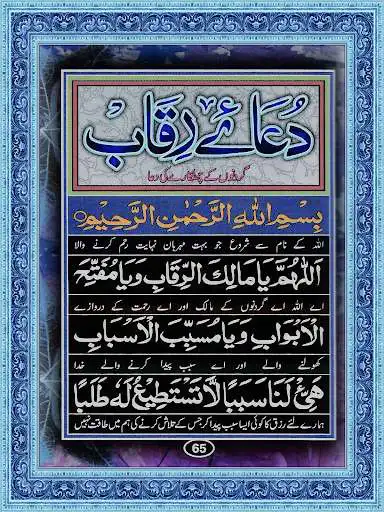 دُعَائے رِقَاب
گردنوں کے چھٹکارے کی دعا
بِسْمِ اللهِ الرَّحْمٰنِ الرَّحِيْمِ
اللہ کے نام سے شروع جو بہت مہربان نہایت رحم کرنے والا
اَللّٰهُمَّ يَا مَالِكَ الرِّقَابِ وَ يَا مُفَتِّحَ
اے اللہ اے گردنوں کے مالک اور اے رحمت کے دروازے
الْاَبْوَابِ وَ يَا مُسَبِّبَ الْاَسْبَابِ
کھولنے والے اور اے سبب پیدا کرنے والے خدا
هَيِّئْ لَنَا سَبَبًا لَّا نَسْتَطِيْعُ لَهٗ طَلَبًا
ہمارے لئے رزق کا کوئی ایسا سبب پیدا کر جس کے تلاش کرنے کی ہم میں طاقت نہیں
65